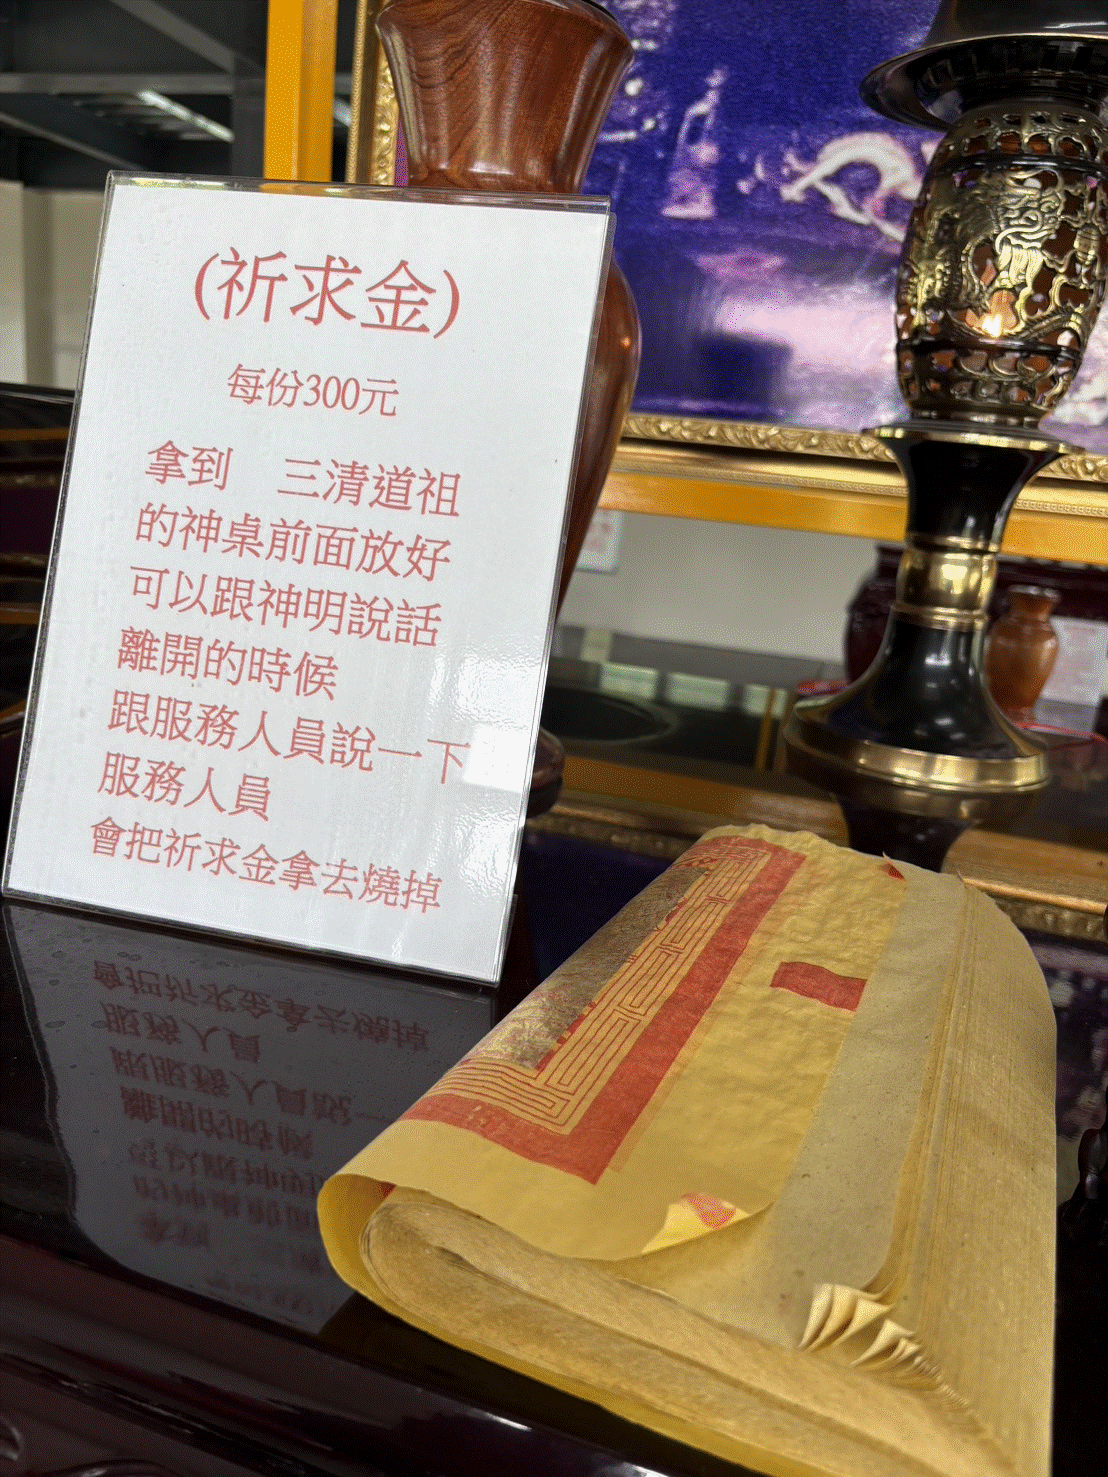 (祈求金)
每份300元
拿到　三清道祖
的神桌前面放好
可以跟神明說話
離開的時候
跟服務人員說一下
服務人員
會把祈求金拿去燒掉